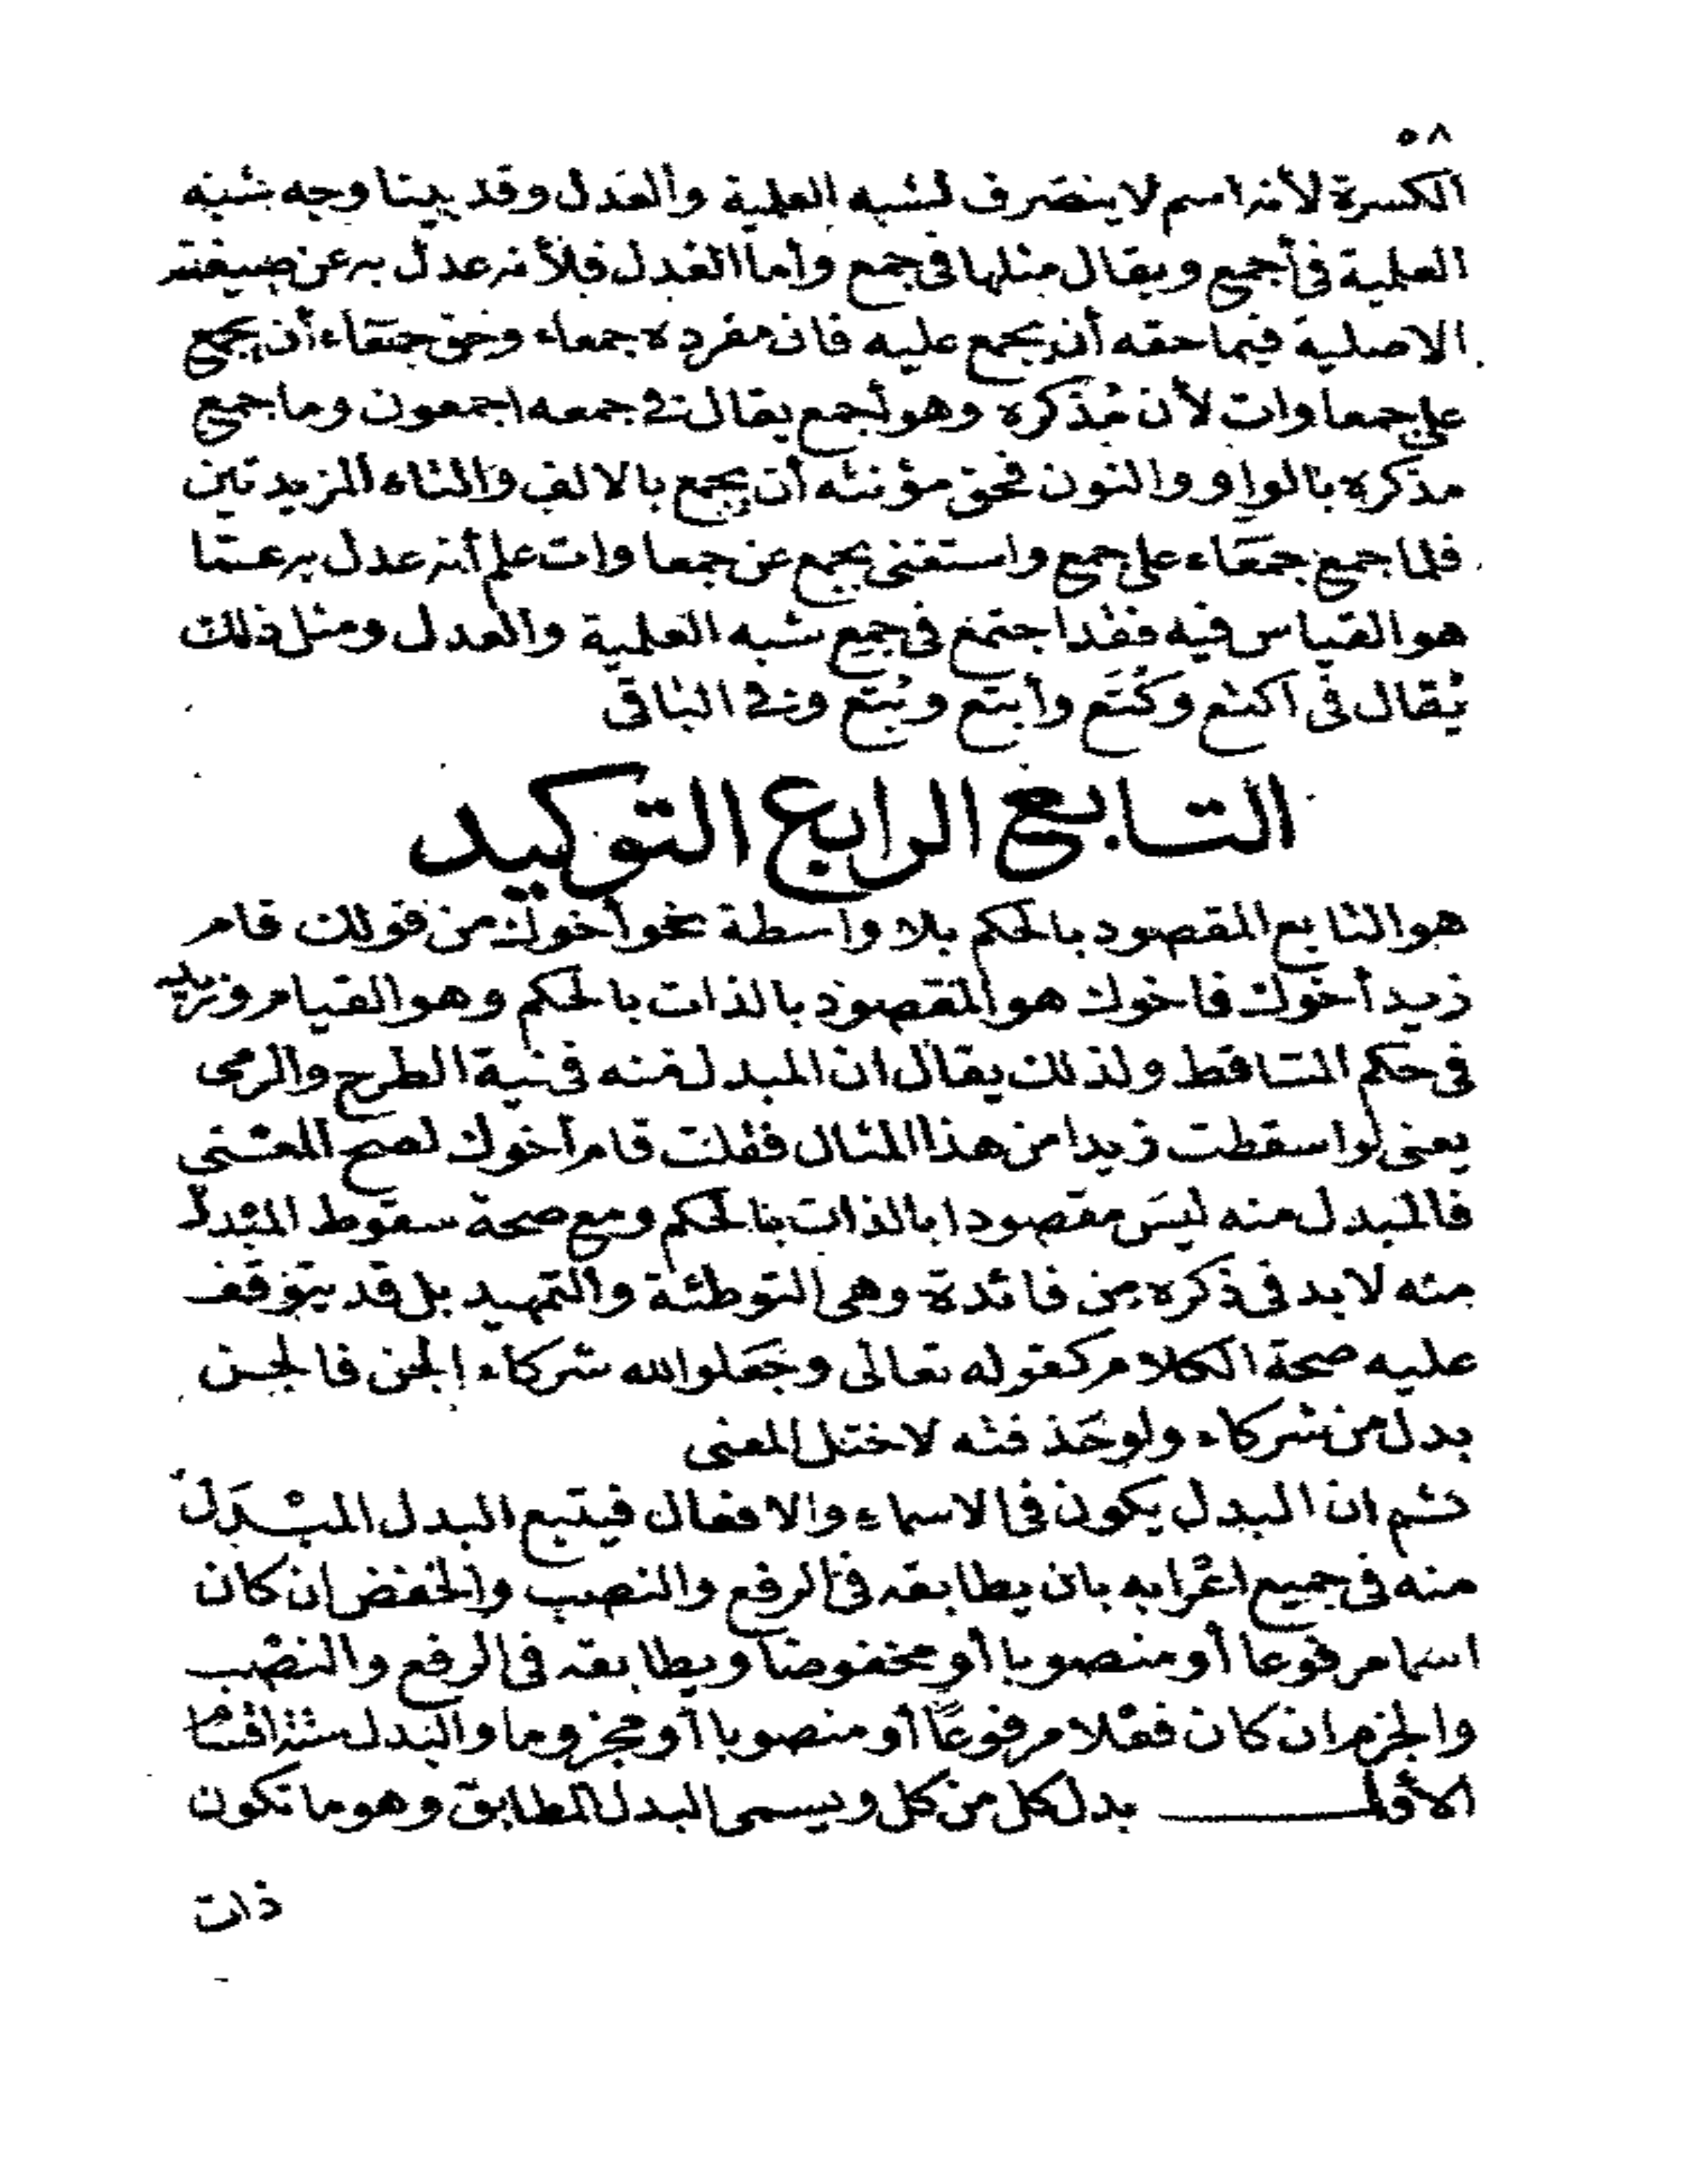 ٥٨
الكسرة لأنه اسم لا ينصرف لشبه العلمية والعدل وقد بينا وجه شبه
العلمية فى أجمع ويقال مثلها فى جمع وأما العدل فلأنه عدل به عن صيغته
الاصلية فيما حقه أن يجمع عليه فان مفرده جمعاء وحق جمعاء أن يجمع
على جمعاوات لأن مذكره وهو أجمع يقال فى جمعه اجمعون وما جمع
مذكره بالواو والنون فحق مؤنثه أن يجمع بالالف والتاء المزيدتين
فلما جمع جمعاء على جمع واستغنى بجمع عن جمعاوات علم أنه عدل به عما
هو القياس فيه فقد اجتمع فى جمع شبه العلمية والعدل ومثل ذلك
يقال فى اكتع وكُتَع وأبتع وبُتع وفى الباقى
التابع الرابع التوكيد
هو التابع المقصود بالحكم بلا واسطة نحو أخوك من قولك قام
زيد أخوك فاخوك هو المقصود بالذات بالحكم وهو القيام وزيد
فى حكم الساقط ولذلك يقال ان المبدل منه فى نية الطرح والرمى
يعنى لو اسقطت زيدا من هذا المثال فقلت قام أخوك لصح المعنى
فالمبدل منه ليس مقصودا بالذات بالحكم ومع صحة سقوط المبدل
منه لابد فى ذكره من فائدة وهى التوطئة والتمهيد بل قد يتوقف
عليه صحة الكلام كقوله تعالى وجَعَلوا لله شركاء الجن فالجن
بدل من شركاء ولو حُذف منه لاختل المعنى
ثم ان البدل يكون فى الاسماء والافعال فيتبع البدل المبدَل
منه فى جميع اعرابه بان يطابقه فى الرفع والنصب والخفض ان كان
اسما مرفوعا أو منصوبا أو مخفوضا ويطابقه فى الرفع والنصب
والجزم ان كان فعلا مرفوعًا أو منصوبا أو مجزوما والبدل ستة اقسام
الأول بدل كل من كل ويسمى البدل المطابق وهو ما تكون
ذات